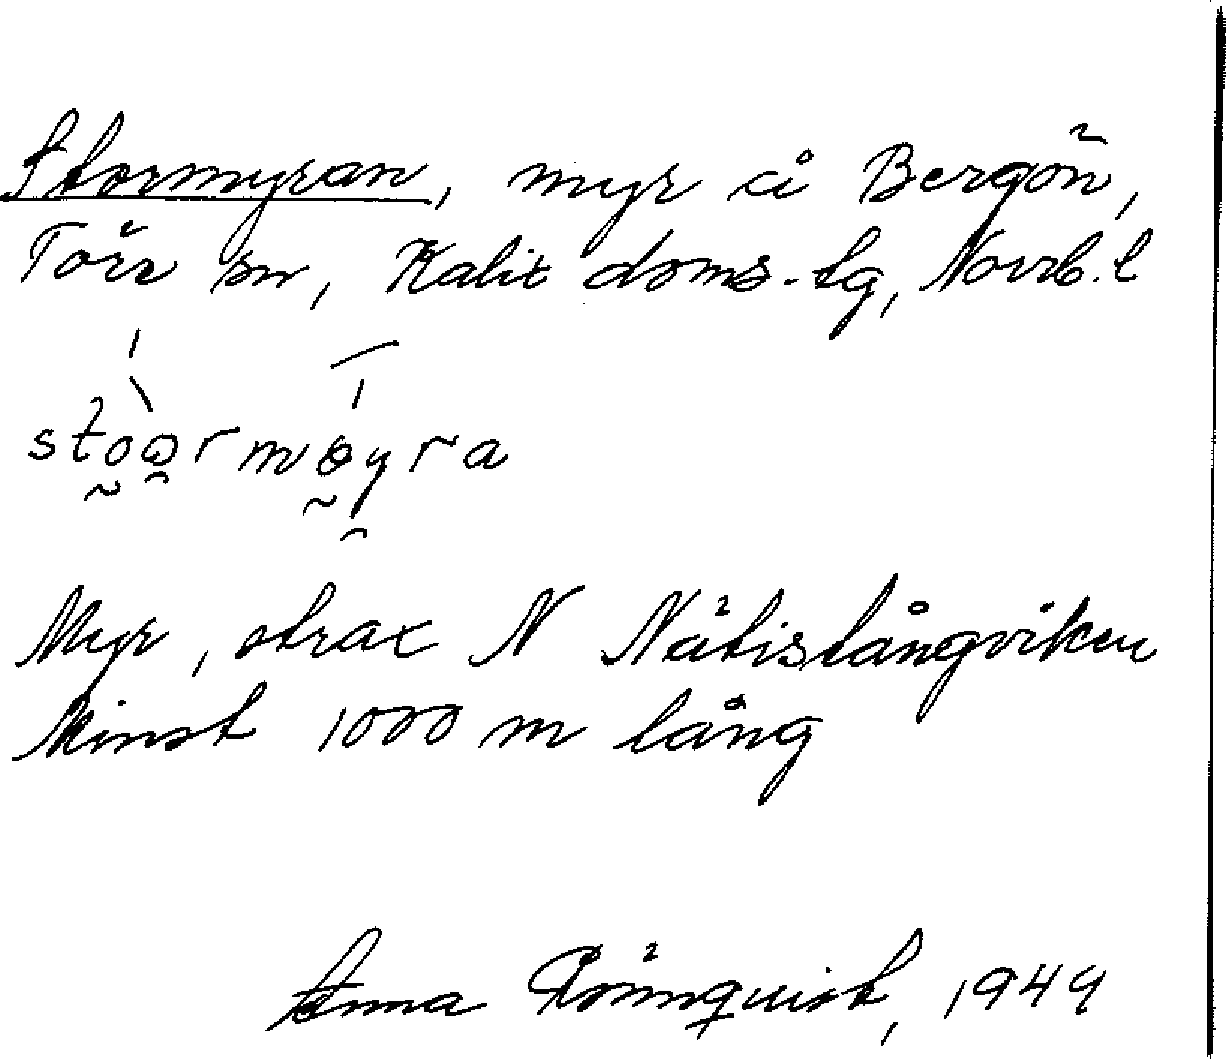 Stormyran, myr å Bergön,
Töre sn, Kalix doms.tg, Norrb.l
Myr, strax N Nätislångviken
Minst 1000 m lång
Anna Rönnquist, 1949